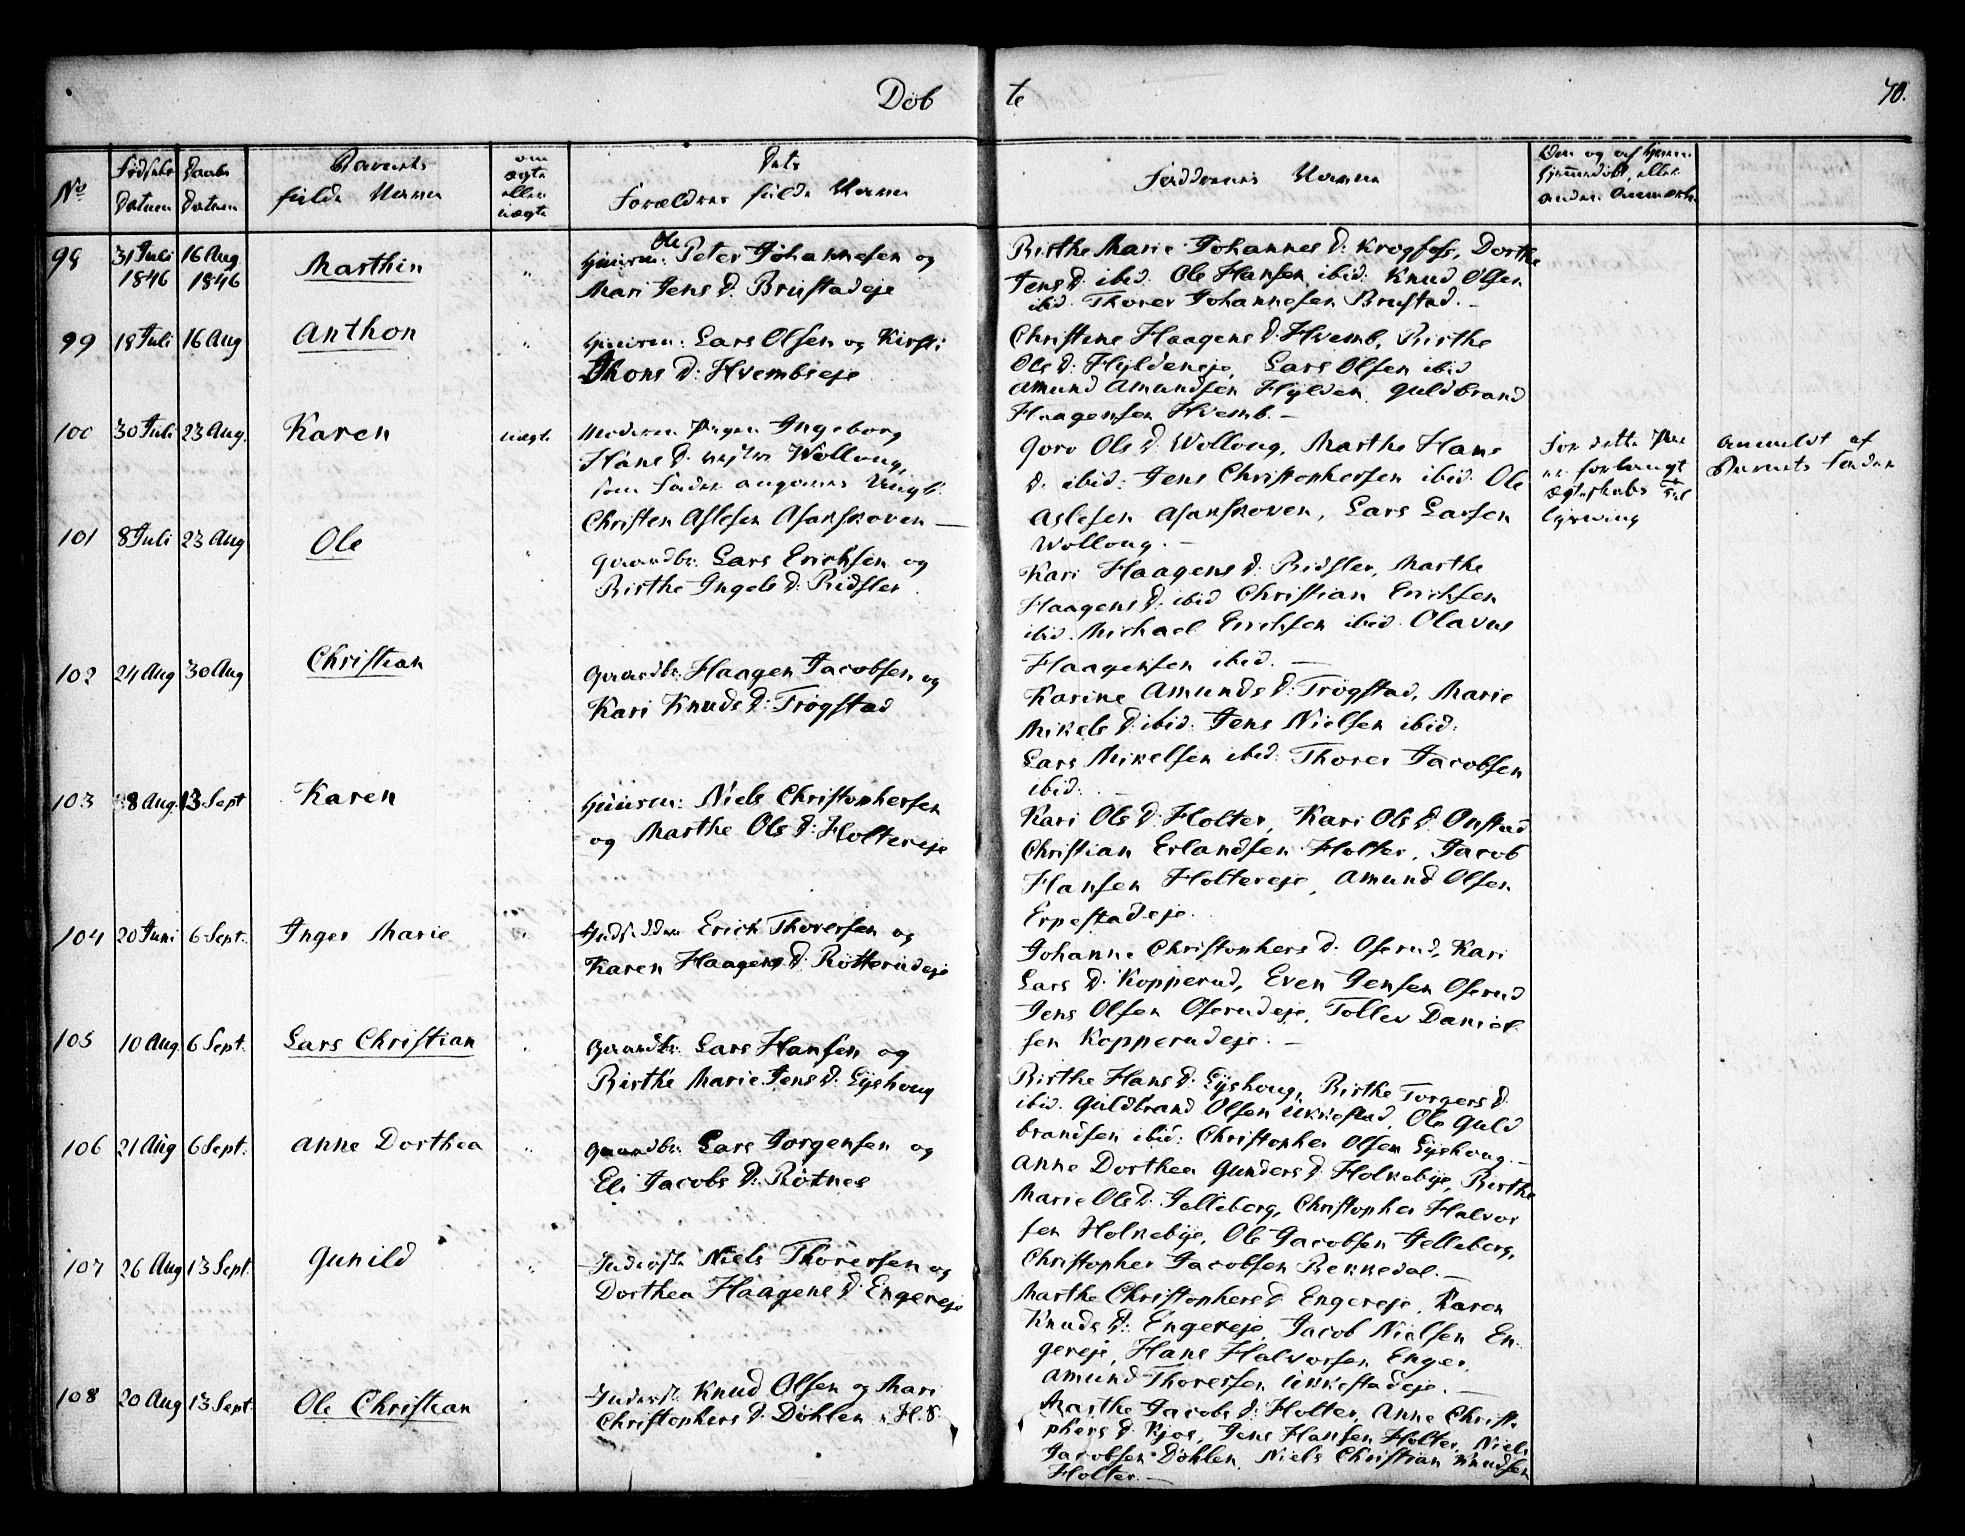 Døb te 70.
No
Fødsels Datum
Daabs Datum
Barnets fulde Navn
om ægte eller uægte
Dets Forældres fulde Navn
Faddrenes Navne
98 31 Juli 1846 16 Aug 1846 Marthin "
Huusm: Ole Peter Johannesen og
Mari Jens D. Brustadeje
Birthe Marie Johannes D: Krogfoss, Dorthe
Jens D. ibid. Ole Hansen ibid. Knud Olsen
ibid. Thorer Johannesen Brustad. -
99 18 Juli 16 Aug Anthon "
Huusm: Lars Olsen og Kirsti
Thons D: Hvembseje
Christine Haagens D: Hvemb, Birthe
Ols D: Hyldeneje, Lars Olsen ibid
Amund Amundsen Hylden, Guldbrand
Haagensen Hvemb. -
100 30 Juli 23 Aug. Karen uægte
Moderen Pigen Ingeborg
Hans D. Wollaug,
som Fader angives Ungk.
Christen Aslesen Asanskoven -
Goro Ols D: Wollaug, Marthe Hans
D. ibid. Jens Christophersen ibid. Ole
Aslesen Asanskoven, Lars Larsen
Wollaug. -
For dette Par
er forlangt
Ægteskabs Til
lysning
anmeldt af
Barnets Fader
101 8 Juli 23 Aug Ole "
Gaardbr. Lars Erichsen og
Birthe Ingels D: Ridsler
Kari Haagens D: Ridsler, Marthe
Haagens D. ibid Christian Erichsen
ibid. Michael Erichsen ibid. Olavus
Haagensen ibid. -
102 24 Aug 30 Aug Christian
Gaardbr. Haagen Jacobsen og
Kari Knuds D: Trøgstad
Karine Amunds D: Trøgstad, Marie
Mikels D: ibid. Jens Nielsen ibid.
Lars Mikelsen ibid: Thorer Jacobsen
ibid.
103 8 Aug. 13 Sept Karen
Huusm: Niels Christophersen
og Marthe Ols D: Holtereje
Kari Ols D. Holter, Kari Ols D. Onstad
Christian Erlandsen Holter, Jacob
Hansen Holtereje, Amund Olsen
Erpestadeje.
104 20 Juni 6 Sept. Inger Marie "
Erich Thorersen og
Karen Haagens D. Rotterudeje
Johanne Christophers D. Oserud, Kari
Lars D. Kopperud, Even Jensen Oserud
Jens Olsen Oserudeje, Tollev Daniel
sen Kopperudeje. -
105 10 Aug. 6 Sept. Lars Christian
Gaardbr. Lars Hansen og
Birthe Marie Jens D. Lyshoug
Birthe Hans D. Lyshoug, Birthe Torgers D.
ibid. Guldbrand Olsen Ukkestad, Ole Guld
brandsen ibid: Christopher Olsen Lyshoug. -
106 21 Aug 6 Sept. Anne Dorthea "
Gaardbr. Lars Jorgensen og
Eli Jacobs D: Røtnes
Anne Dorthea Gunders D. Holkebye, Birthe
Marie Ols D. Jelleberg, Christopher Halvor
sen Holkebye, Ole Jacobsen Jelleberg,
Christopher Jacobsen Bekkedal. -
107 26 Aug 13 Sept. Gunild "
Inderste Niels Thorersen og
Dorthea Haagens D. Engereje
Marthe Christophers D. Engereje, Karen
Knuds D: Engereje, Jacob Nielsen En-
gereje, Hans Halvorsen Enger.
Amund Thorersen Ukkestadeje. -
108 20 Aug 13 Sept Ole Christian
Inderst. Knud Olsen og Mari
Christophers D. Døhlen i H. S.
Marthe Jacobs D: Holter, Anne Christo
phers D. Kjos, Jens Hansen Holter, Niels
Jacobsen Døhlen, Niels Christian Knudsen
Holter. -